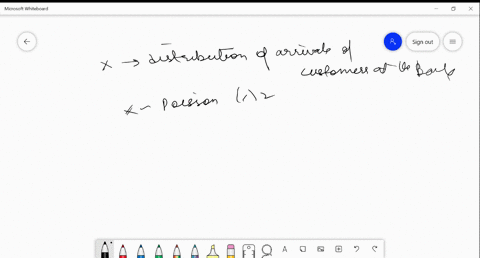 Microsoft Whiteboard
Sign out
X → distribution of arrivals of
customers at the Bank
X ~ Poisson (λ)
A